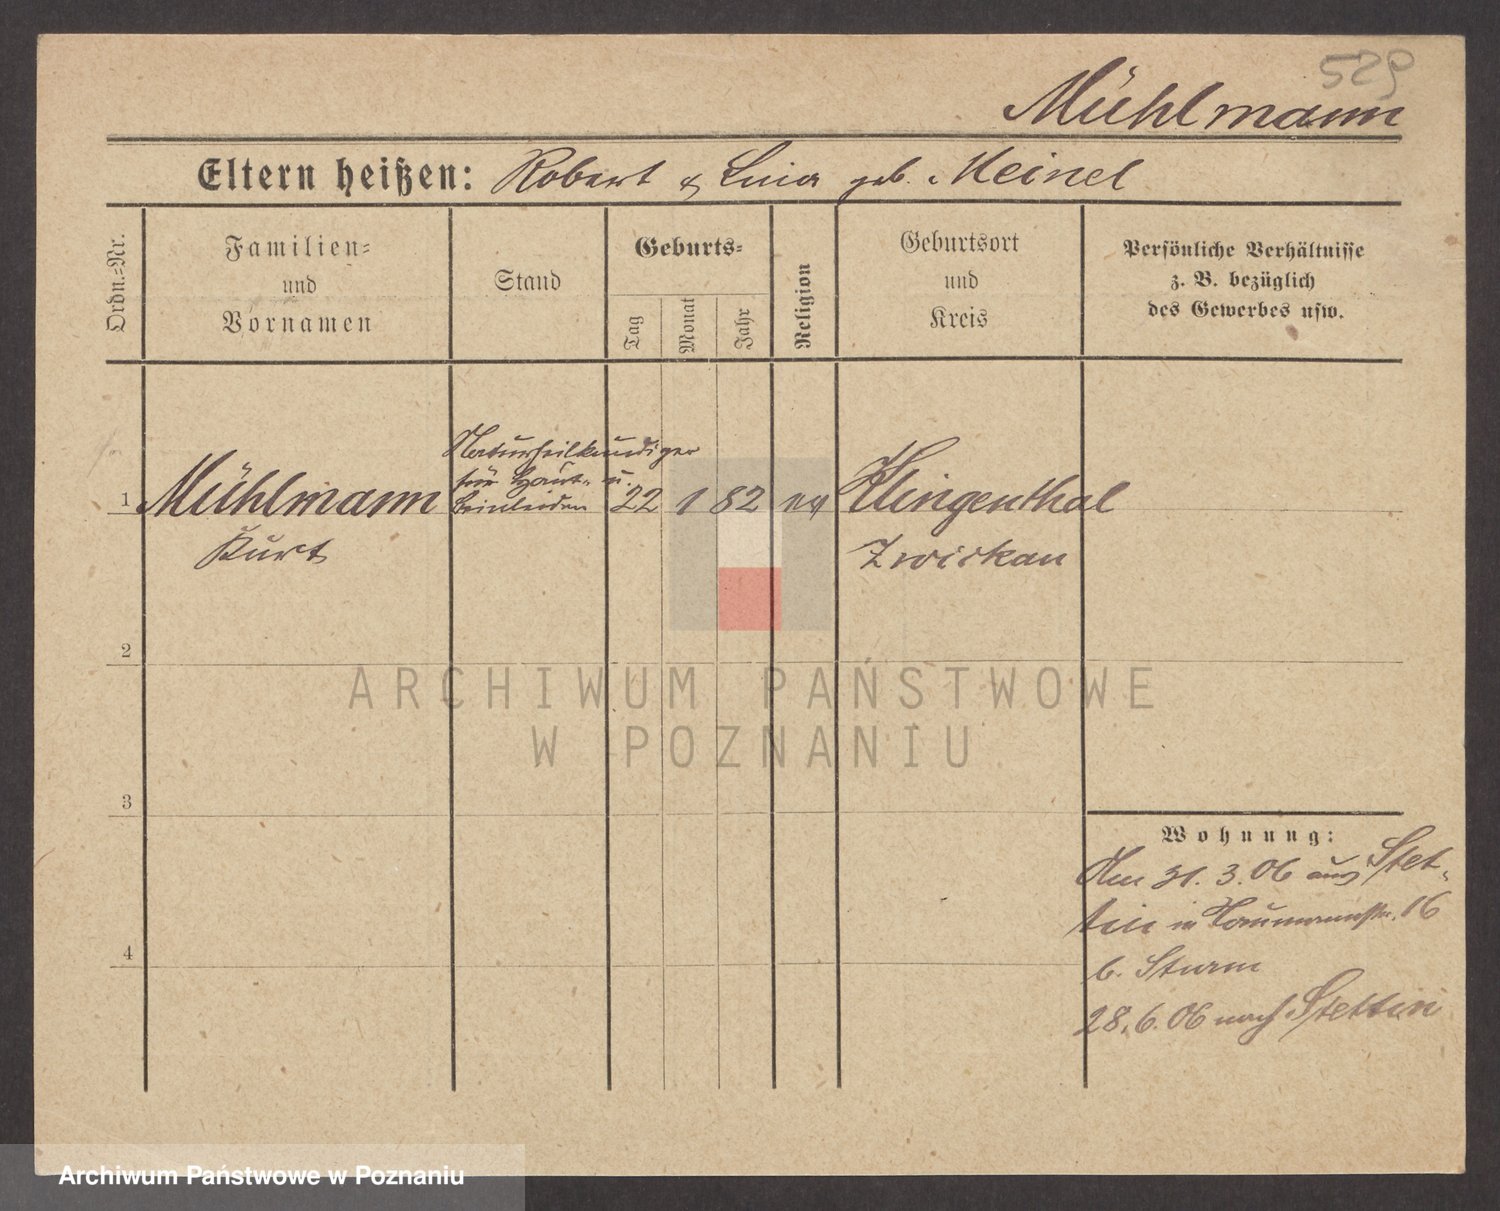 529
Mühlmann
Eltern heißen: Robert & Lina geb. Meinel
Ordn.=Nr.
Familien=
und
Vornamen
Stand
Geburts=
Tag
Monat
Jahr
Religion
Geburtsort
und
Kreis
Persönliche Verhältnisse
z. B. bezüglich
des Gewerbes usw.
1 Mühlmann
Kurt
Naturheilkundiger
für Haut- u.
Beinleiden
22 1 82 ev
Klingenthal
Zwickau
2
3
4
Wohnung:
Am 31. 3. 06 aus Stet-
tin in Naumannstr. 16
b. Sturm
28. 6. 06 nach Stettin
ARCHIWUM PAŃSTWOWE
W POZNANIU
Archiwum Państwowe w Poznaniu